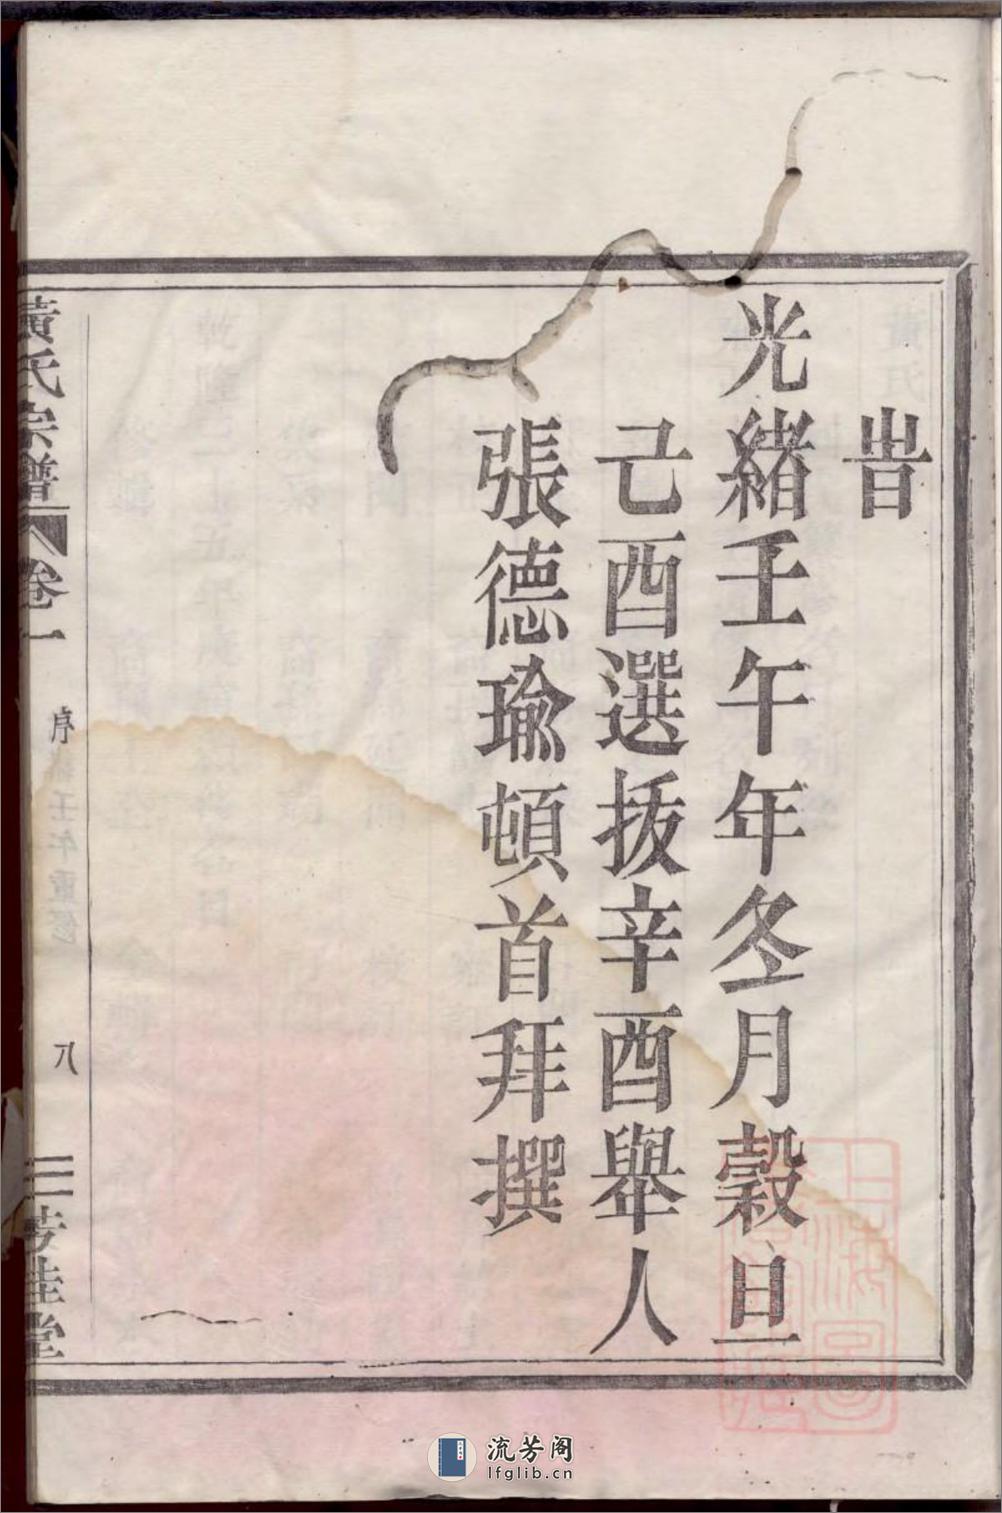 旹
光緒壬午年冬月穀旦
己酉選拔辛酉舉人
張德瑜頓首拜撰
黃氏宗譜 卷一 序 八 三芳桂堂
上海圖書館藏
流芳阁
lfglib.cn